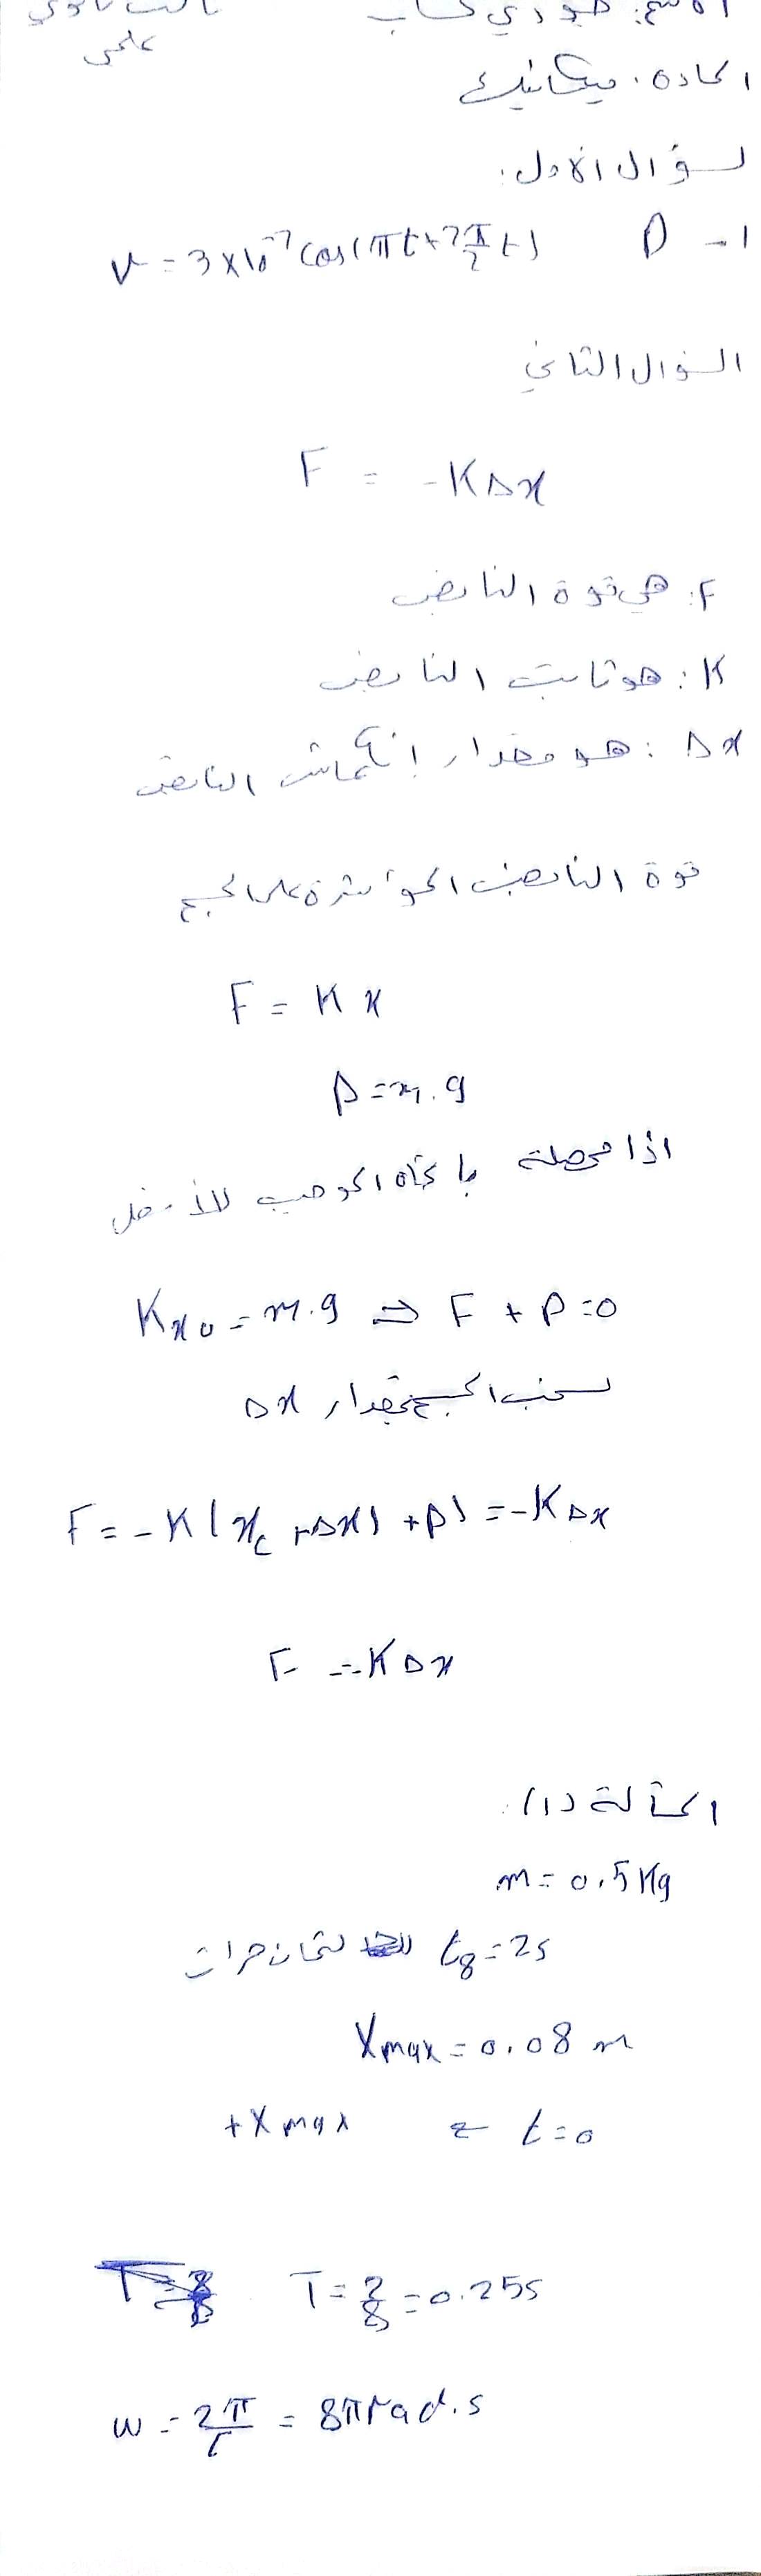 الاسم: هودي كساب
علمي
المادة: ميكانيك
لسؤال الاول:
1 - D v = 3 x 10^-7 cos(πt + 3π/2 t)
السؤال الثاني
F = -KΔx
F: هي قوة النابض
K: هو ثابت النابض
Δx: هو مقدار إنكماش النابض
قوة النابض المؤثرة على الجسم
F = K x
P = m.g
اذا محصلة باتجاه الموجب للأسفل
Kx0 = m.g ⇒ F + P = 0
لسحب الجسم بمقدار Δx
F = -K(x0 + Δx) + P) = -KΔx
F = -KΔx
المسألة (1):
m = 0.5 Kg
t8 = 2s لثمان مرات
Xmax = 0.08 m
t = 0 +Xmax
T = 2/8 = 0.25s
w = 2π/T = 8π rad.s